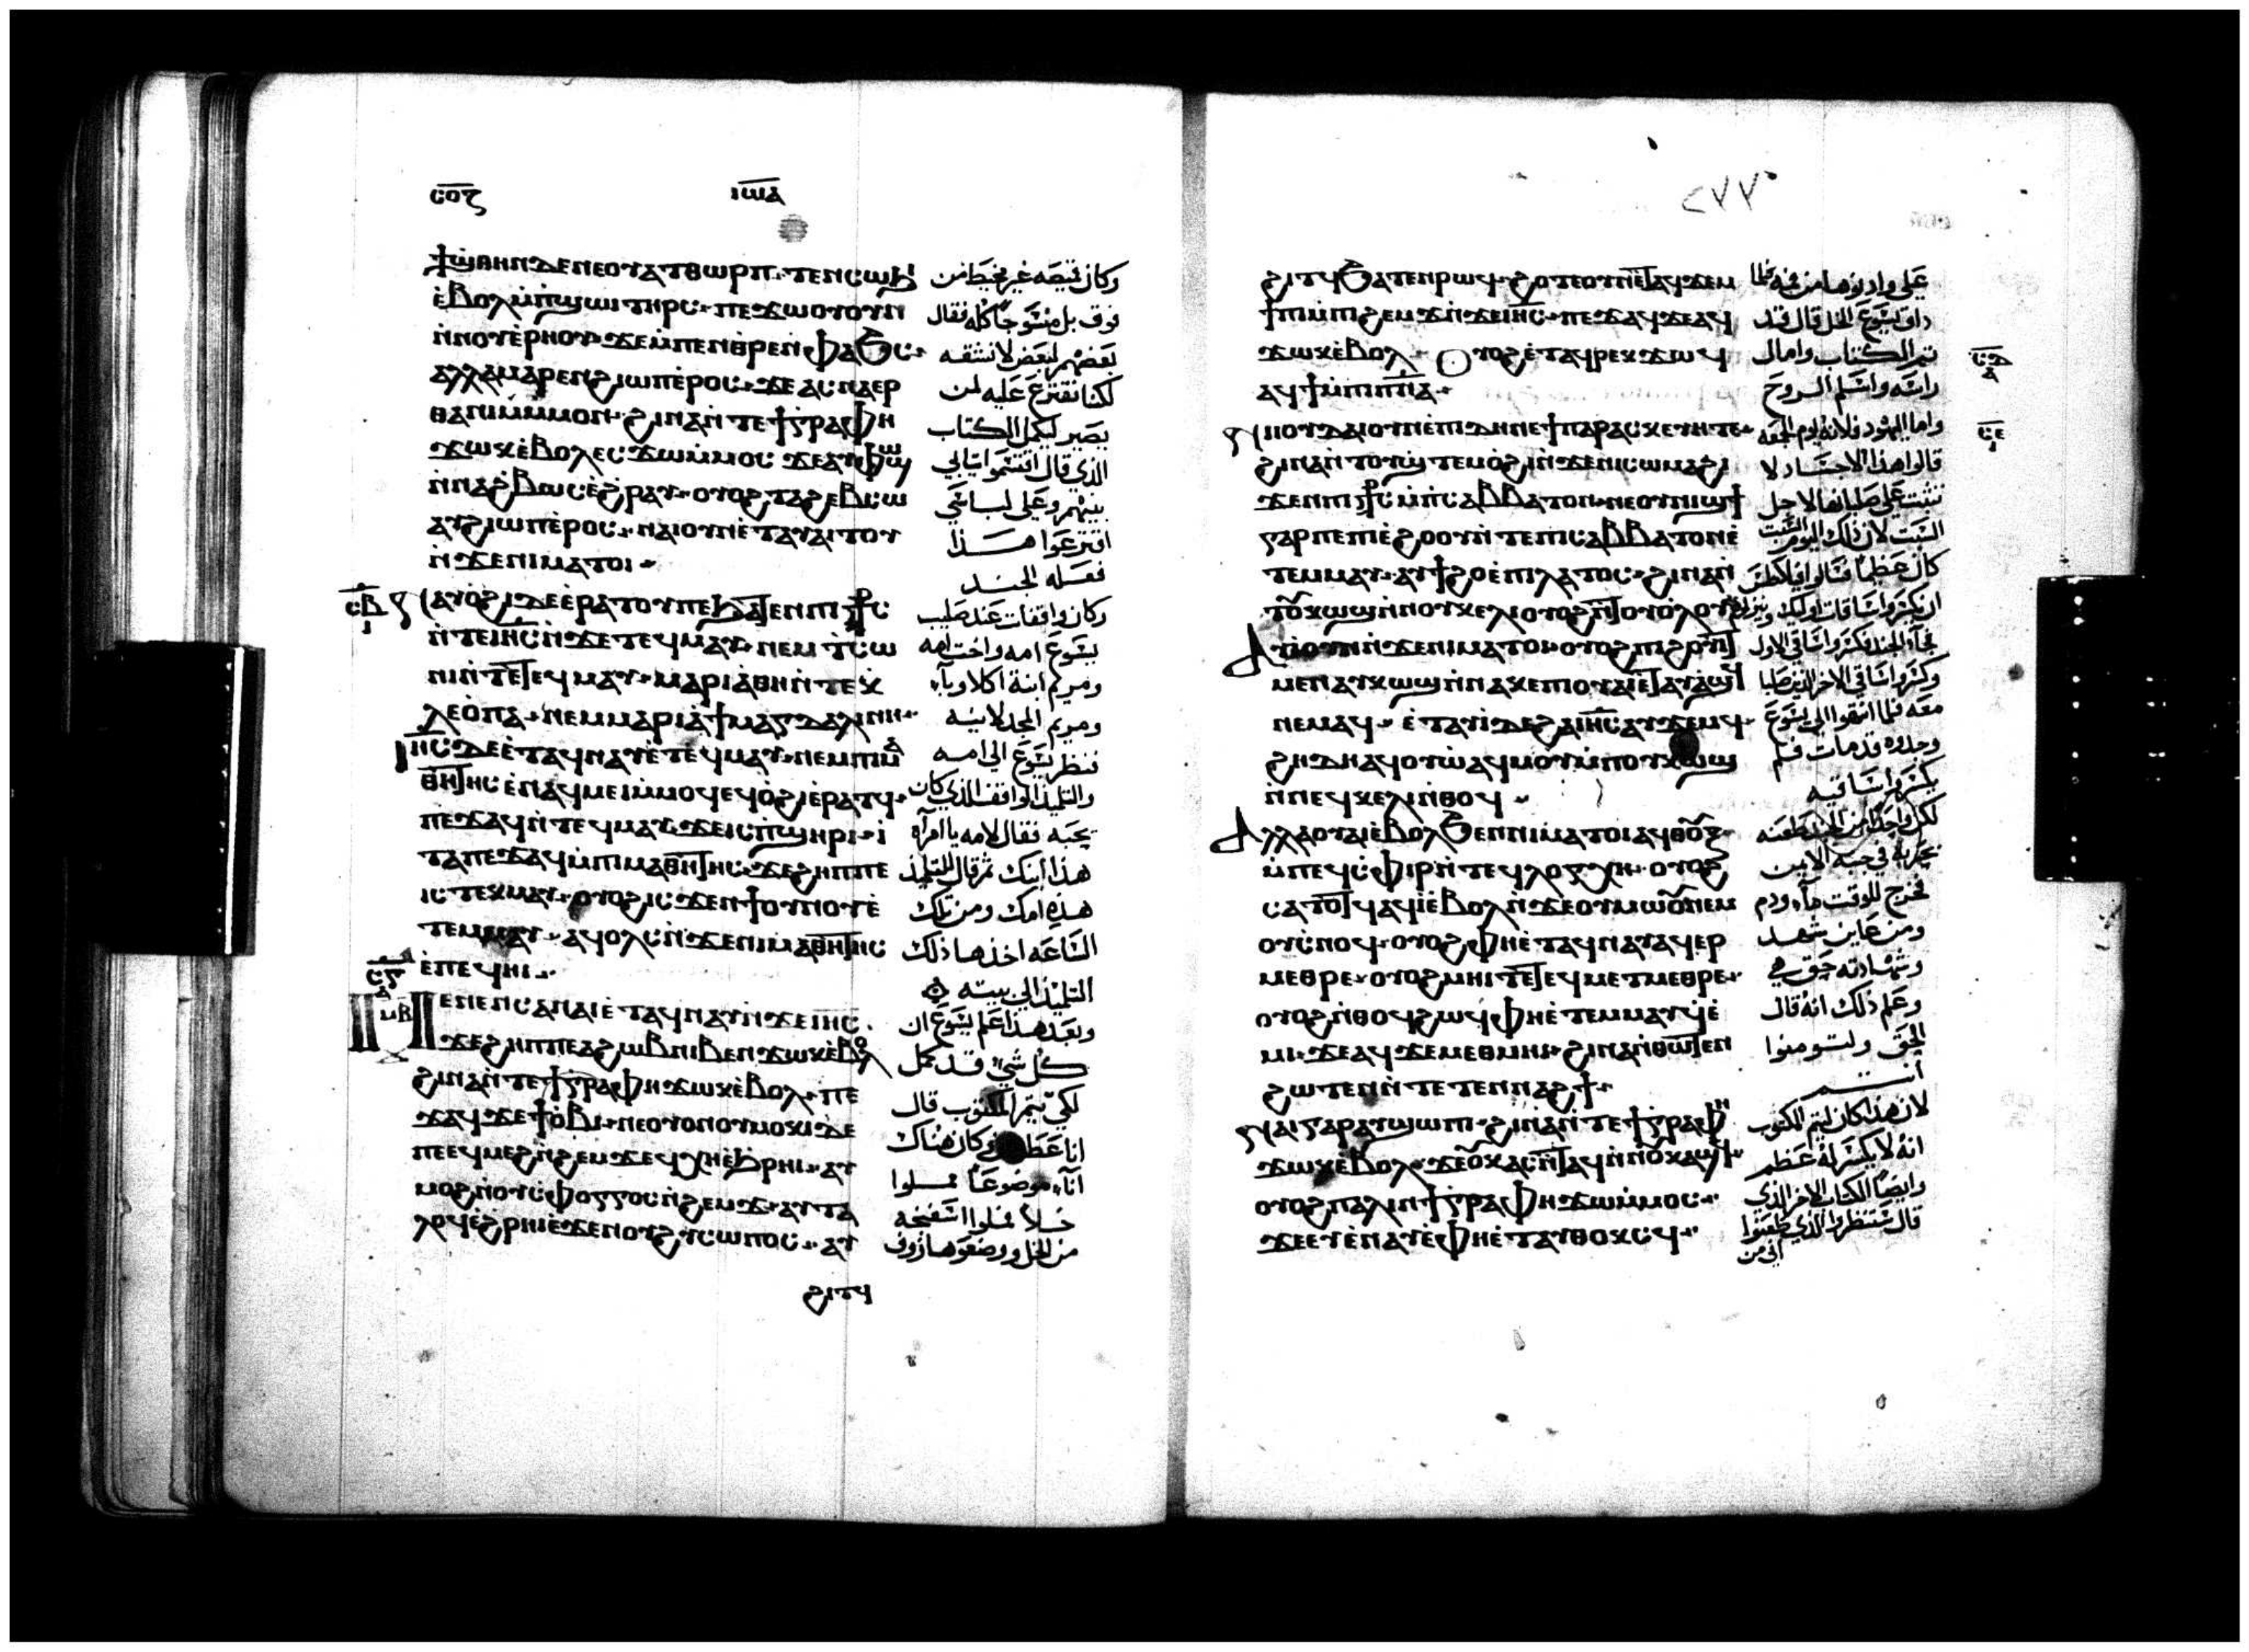 ⲥⲟⲍ ⲓⲱⲁ
ϯϣⲑⲏⲛ ⲇⲉ ⲛⲉ ⲟⲩⲁⲧⲑⲱⲣⲡ ⲧⲉ ⲛⲥⲱϧ
ⲉ̀ⲃⲟⲗ ⲙ̀ⲡϣⲱⲓ ⲧⲏⲣⲥ ⲡⲉϫⲱⲟⲩ ⲟⲩⲛ
ⲛ̀ⲛⲟⲩⲉ̀ⲣⲏⲟⲩ ϫⲉ ⲙ̀ⲡⲉⲛⲑⲣⲉⲛ̀ⲫⲁϧⲥ
ⲁⲗⲗⲁ ⲙⲁⲣⲉⲛϩⲓⲱⲡ ⲉ̀ⲣⲟⲥ ϫⲉ ⲁⲥⲛⲁⲉⲣ
ⲑⲁ ⲛⲓⲙ ⲙ̀ⲙⲟⲛ ϩⲓⲛⲁ ⲛ̀ⲧⲉ ϯⲅⲣⲁⲫⲏ
ϫⲱⲕ ⲉ̀ⲃⲟⲗ ⲉⲥϫⲱ ⲙ̀ⲙⲟⲥ ϫⲉ ⲁⲩⲫⲱϣ
ⲛ̀ⲛⲁϩ̀ⲃⲱⲥ ⲉ̀ϩⲣⲁⲩ ⲟⲩⲟϩ ⲧⲁϩⲉⲃⲥⲱ
ⲁⲩϩⲓⲱⲡ ⲉ̀ⲣⲟⲥ ⲛⲁⲓ ⲟⲩⲛ ⲉ̀ⲧⲁⲩⲁⲓⲧⲟⲩ
ⲛ̀ϫⲉ ⲛⲓⲙⲁⲧⲟⲓ
ⲥⲃ
ⲛⲁⲩⲟ̀ϩⲓ ⲇⲉ ⲉ̀ⲣⲁⲧⲟⲩ ⲡⲉ ϧⲁⲧⲉⲛ ⲡⲓ ⳨ⲥ
ⲛ̀ⲧⲉ ⲓⲏⲥ ⲛ̀ϫⲉ ⲧⲉϥⲙⲁⲩ ⲛⲉⲙ ⲧⲥⲱ
ⲛⲓ ⲛ̀ⲧⲉ ⲧⲉϥⲙⲁⲩ ⲙⲁⲣⲓⲁ ⲑⲏ ⲛ̀ⲧⲉ ⲕ
ⲗⲉⲟ̀ⲡⲁ ⲛⲉⲙ ⲙⲁⲣⲓⲁ̀ ϯⲙⲁⲅⲇⲁⲗⲓⲛⲏ
ⲓⲏⲥ ⲇⲉ ⲉ̀ⲧⲁϥⲛⲁⲩ ⲉ̀ⲧⲉϥⲙⲁⲩ ⲛⲉⲙ ⲡⲓⲙⲁ
ⲑⲏⲧⲏⲥ ⲉ̀ⲛⲁϥⲙⲉⲓ ⲙ̀ⲙⲟϥ ⲉϥⲟ̀ϩⲓ ⲉ̀ⲣⲁⲧϥ
ⲡⲉϫⲁϥ ⲛ̀ⲧⲉϥⲙⲁⲩ ϫⲉ ⲓⲥ ⲡ̀ϣⲏⲣⲓ ⲓ̀
ⲧⲁ ⲡⲉϫⲁϥ ⲙ̀ⲡⲓⲙⲁⲑⲏⲧⲏⲥ ϫⲉ ϩⲏⲡⲡⲉ
ⲓⲥ ⲧⲉⲕⲙⲁⲩ ⲟⲩⲟϩ ⲓⲥϫⲉⲛ ϯⲟⲩⲛⲟⲩ ⲉ̀
ⲧⲉⲙⲙⲁⲩ ⲁϥⲟⲗⲥ ⲛ̀ϫⲉ ⲡⲓⲙⲁⲑⲏⲧⲏⲥ
ⲉ̀ⲡⲉϥⲏⲓ
ⲙⲃ
ⲙⲉⲛⲉⲛⲥⲁ ⲛⲁⲓ ⲉ̀ⲧⲁϥⲛⲁⲩ ⲛ̀ϫⲉ ⲓⲏⲥ
ϫⲉ ϩⲏⲡⲡⲉ ⲁ ϩⲱⲃ ⲛⲓⲃⲉⲛ ϫⲱⲕ ⲉ̀ⲃⲟⲗ
ϩⲓⲛⲁ ⲛ̀ⲧⲉ ϯⲅⲣⲁⲫⲏ ϫⲱⲕ ⲉ̀ⲃⲟⲗ ⲡⲉ
ϫⲁϥ ϫⲉ ϯⲟ̀ⲃⲓ ⲛⲉ ⲟⲩⲟⲛ ⲟⲩⲙⲟⲕⲓ ⲇⲉ
ⲡⲉ ⲉϥⲙⲉϩ ⲛ̀ϩⲉⲙϫ ⲉϥⲭⲏ ⲉ̀ϧⲣⲏⲓ ⲁⲩ
ⲙⲟϩ ⲛ̀ⲟⲩⲥ̀ⲫⲟⲅⲅⲟⲥ ⲛ̀ϩⲉⲙϫ ⲁⲩⲧⲁ
ⲗⲟϥ ⲉ̀ϩⲣⲏⲓ ⲉ̀ϫⲉⲛ ⲟⲩϩⲩⲥⲱⲡⲟⲥ ⲁⲩ
ϩⲓⲧϥ
وكان قميصه غير مخيط من
فوق بل منسوجا كله فقال
بعضهم لبعض لا نشقه
لكنا نقترع عليه لمن
يصير ليكمل الكتاب
الذي قال اقتسموا ثيابي
بينهم وعلى لباسي
اقترعوا هذا
فعله الجند
وكان واقفات عند صليب
يسوع امه واخت امه
ومريم ابنة اكلاوبا
ومريم المجدلانيه
فنظر يسوع الى امه
والتلميذ الواقف الذي كان
يحبه فقال لامه يا امرأة
هذا ابنك ثم قال للتلميذ
هذه امك ومن تلك
الساعه اخذها ذلك
التلميذ الى بيته
وبعد هذا علم يسوع ان
كل شي قد كمل
لكي يتم المكتوب قال
انا عطشان وكان هناك
اناء موضوعا مملوا
خلا فملوا اسفنجة
من الخل ووضعوها زوفا
٢٧٧
ϩⲓⲧϥ ϧⲁⲧⲉⲛ ⲣⲱϥ ϩⲟⲧⲉ ⲟⲩⲛ ⲉ̀ⲧⲁϥϫⲉⲙ
ϯⲡⲓ ⲙ̀ⲡⲓϩⲉⲙϫ ⲛ̀ϫⲉ ⲓⲏⲥ ⲡⲉϫⲁϥ ϫⲉ ⲁϥ
ϫⲱⲕ ⲉ̀ⲃⲟⲗ ⲟⲩⲟϩ ⲉ̀ⲧⲁϥⲣⲉⲕ ϫⲱϥ
ⲁϥϯ ⲙ̀ⲡⲓⲡⲛⲁ
ⲥⲇ
ⲥⲉ
ⲛⲓⲟⲩⲇⲁⲓ ⲟⲩⲛ ⲉ̀ⲡⲓⲇⲏ ⲛⲉ ϯⲡⲁⲣⲁⲥⲕⲉⲩⲏ ⲧⲉ
ϩⲓⲛⲁ ⲛ̀ⲧⲟⲩϣ̀ⲧⲉⲙⲟ̀ϩⲓ ⲛ̀ϫⲉ ⲛⲓⲥⲱⲙⲁ ϩⲓ
ϫⲉⲛ ⲡⲓ ⳨ⲥ ⲙ̀ⲡⲥⲁⲃⲃⲁⲧⲟⲛ ⲛⲉ ⲟⲩⲛⲓϣϯ
ⲅⲁⲣ ⲡⲉ ⲡⲓⲉ̀ϩⲟⲟⲩ ⲛ̀ⲧⲉ ⲡⲓⲥⲁⲃⲃⲁⲧⲟⲛ ⲉ̀
ⲧⲉⲙⲙⲁⲩ ⲁⲩϯϩⲟ ⲉ̀ⲡⲓⲗⲁⲧⲟⲥ ϩⲓⲛⲁ ⲛ̀
ⲧⲟⲩⲕⲱϣ ⲛ̀ⲛⲟⲩⲕⲉⲗⲓ ⲟⲩⲟϩ ⲛ̀ⲧⲟⲩⲟ̀ⲗⲟⲩ
ⲁⲩⲓ̀ ⲟⲩⲛ ⲛ̀ϫⲉ ⲛⲓⲙⲁⲧⲟⲓ ⲟⲩⲟϩ ⲡⲓϩⲟⲩⲓⲧ
ⲙⲉⲛ ⲁⲩⲕⲱϣ ⲛ̀ⲛⲁ ⲕⲉⲡⲓⲟⲩⲁⲓ ⲉ̀ⲧⲁⲩⲁϣϥ
ⲛⲉⲙⲁϥ ⲉ̀ⲧⲁⲩⲓ̀ ⲇⲉ ϩⲁ ⲓⲏⲥ ⲁⲩϫⲉⲙϥ
ϩⲏⲇⲏ ⲁϥⲟⲩⲱ ⲁϥⲙⲟⲩ ⲙ̀ⲡⲟⲩⲕⲱϣ
ⲛ̀ⲛⲉϥⲕⲉⲗⲓ ⲛ̀ⲑⲟϥ
ⲁⲗⲗⲁ ⲟⲩⲁⲓ ⲉ̀ⲃⲟⲗ ϧⲉⲛ ⲛⲓⲙⲁⲧⲟⲓ ⲁϥⲑⲟⲩⲝ
ⲙ̀ⲡⲉϥⲥ̀ⲫⲓⲣ ⲛ̀ⲧⲉϥⲗⲟⲅⲭⲏ ⲟⲩⲟϩ
ⲥⲁⲧⲟⲧϥ ⲁϥⲓ̀ ⲉ̀ⲃⲟⲗ ⲛ̀ϫⲉ ⲟⲩⲙⲱⲟⲩ ⲛⲉⲙ
ⲟⲩⲥⲛⲟϥ ⲟⲩⲟϩ ⲫⲏ ⲉ̀ⲧⲁϥⲛⲁⲩ ⲁϥⲉⲣ
ⲙⲉⲑⲣⲉ ⲟⲩⲟϩ ⲙⲏⲓ ⲧⲉ ⲧⲉϥⲙⲉⲧⲙⲉⲑⲣⲉ
ⲟⲩⲟϩ ⲛ̀ⲑⲟϥ ϩⲱϥ ⲫⲏ ⲉ̀ⲧⲉⲙⲙⲁⲩ ϥⲉ̀
ⲙⲓ ϫⲉ ⲁϥϫⲉ ⲙⲉⲑⲙⲏⲓ ϩⲓⲛⲁ ⲛ̀ⲑⲱⲧⲉⲛ
ϩⲱⲧⲉⲛ ⲛ̀ⲧⲉⲧⲉⲛⲛⲁϩϯ
ⲛⲁⲓ ⲅⲁⲣ ⲁⲩϣⲱⲡⲓ ϩⲓⲛⲁ ⲛ̀ⲧⲉ ϯⲅⲣⲁⲫⲏ
ϫⲱⲕ ⲉ̀ⲃⲟⲗ ϫⲉ ⲟⲩⲕⲁⲥ ⲛ̀ⲧⲁϥ ⲛ̀ⲛⲟⲩⲕⲁϣϥ
ⲟⲩⲟϩ ⲡⲁⲗⲓⲛ ϯⲅⲣⲁⲫⲏ ϫⲱ ⲙ̀ⲙⲟⲥ
ϫⲉ ⲉⲩⲉ̀ⲛⲁⲩ ⲉ̀ⲫⲏ ⲉ̀ⲧⲁⲩⲑⲟⲕⲥϥ
على وادنوها من فيه فلما
ذاق يسوع الخل قال قد
تم الكتاب وامال
راسه واسلم الروح
واما اليهود فلانه يوم الجمعه
قالوا هذا الاجساد لا
تثبت على صلبانها لاجل
السبت لان ذلك اليوم السبت
كان عظيما فسالوا فيلاطس
ان يكسروا ساقات اولئك وينزلوهم
فجاء الجند فكسروا ساقي الاول
وكسروا ساقي الاخر الذي صلبا
معه فلما اتوا الى يسوع
وجدوه قد مات فلم
يكسروا ساقيه
لكن واحدا من الجند طعنه
بحربة في جنبه الايمن
فخرج للوقت ماء ودم
ومن عاين شهد
وشهادته حق هي
وعلم ذلك انه قال
الحق ولتومنوا
انتم
لان هذا كان ليتم المكتوب
انه لا يكسر له عظم
وايضا الكتاب الاخر الذي
قال سينظروا الذي طعنوا